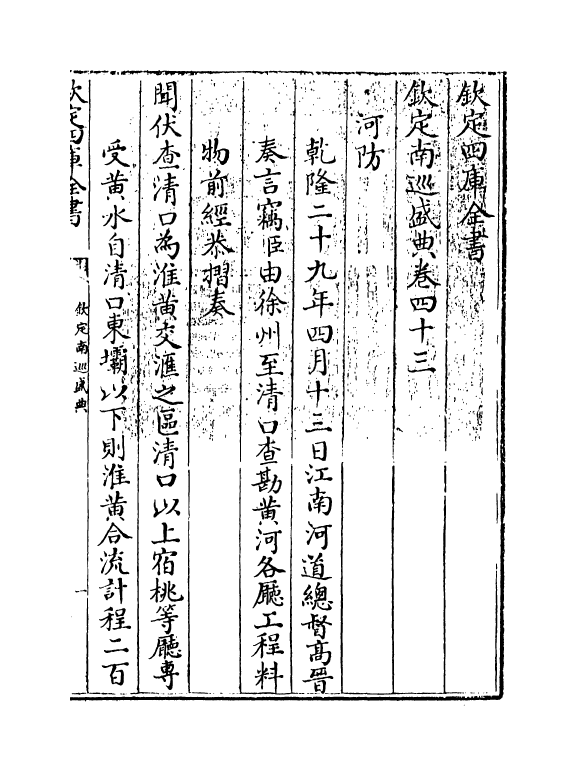 欽定四庫全書
欽定南巡盛典卷四十三
河防
乾隆二十九年四月十三日江南河道總督髙晉
奏言竊臣由徐州至清口查勘黄河各㕔工程料
物前經恭摺奏
聞伏查清口為淮黄交滙之區清口以上宿桃等㕔專
受黄水自清口東壩以下則淮黄合流計程二百
欽定四庫全書
欽定南巡盛典
一